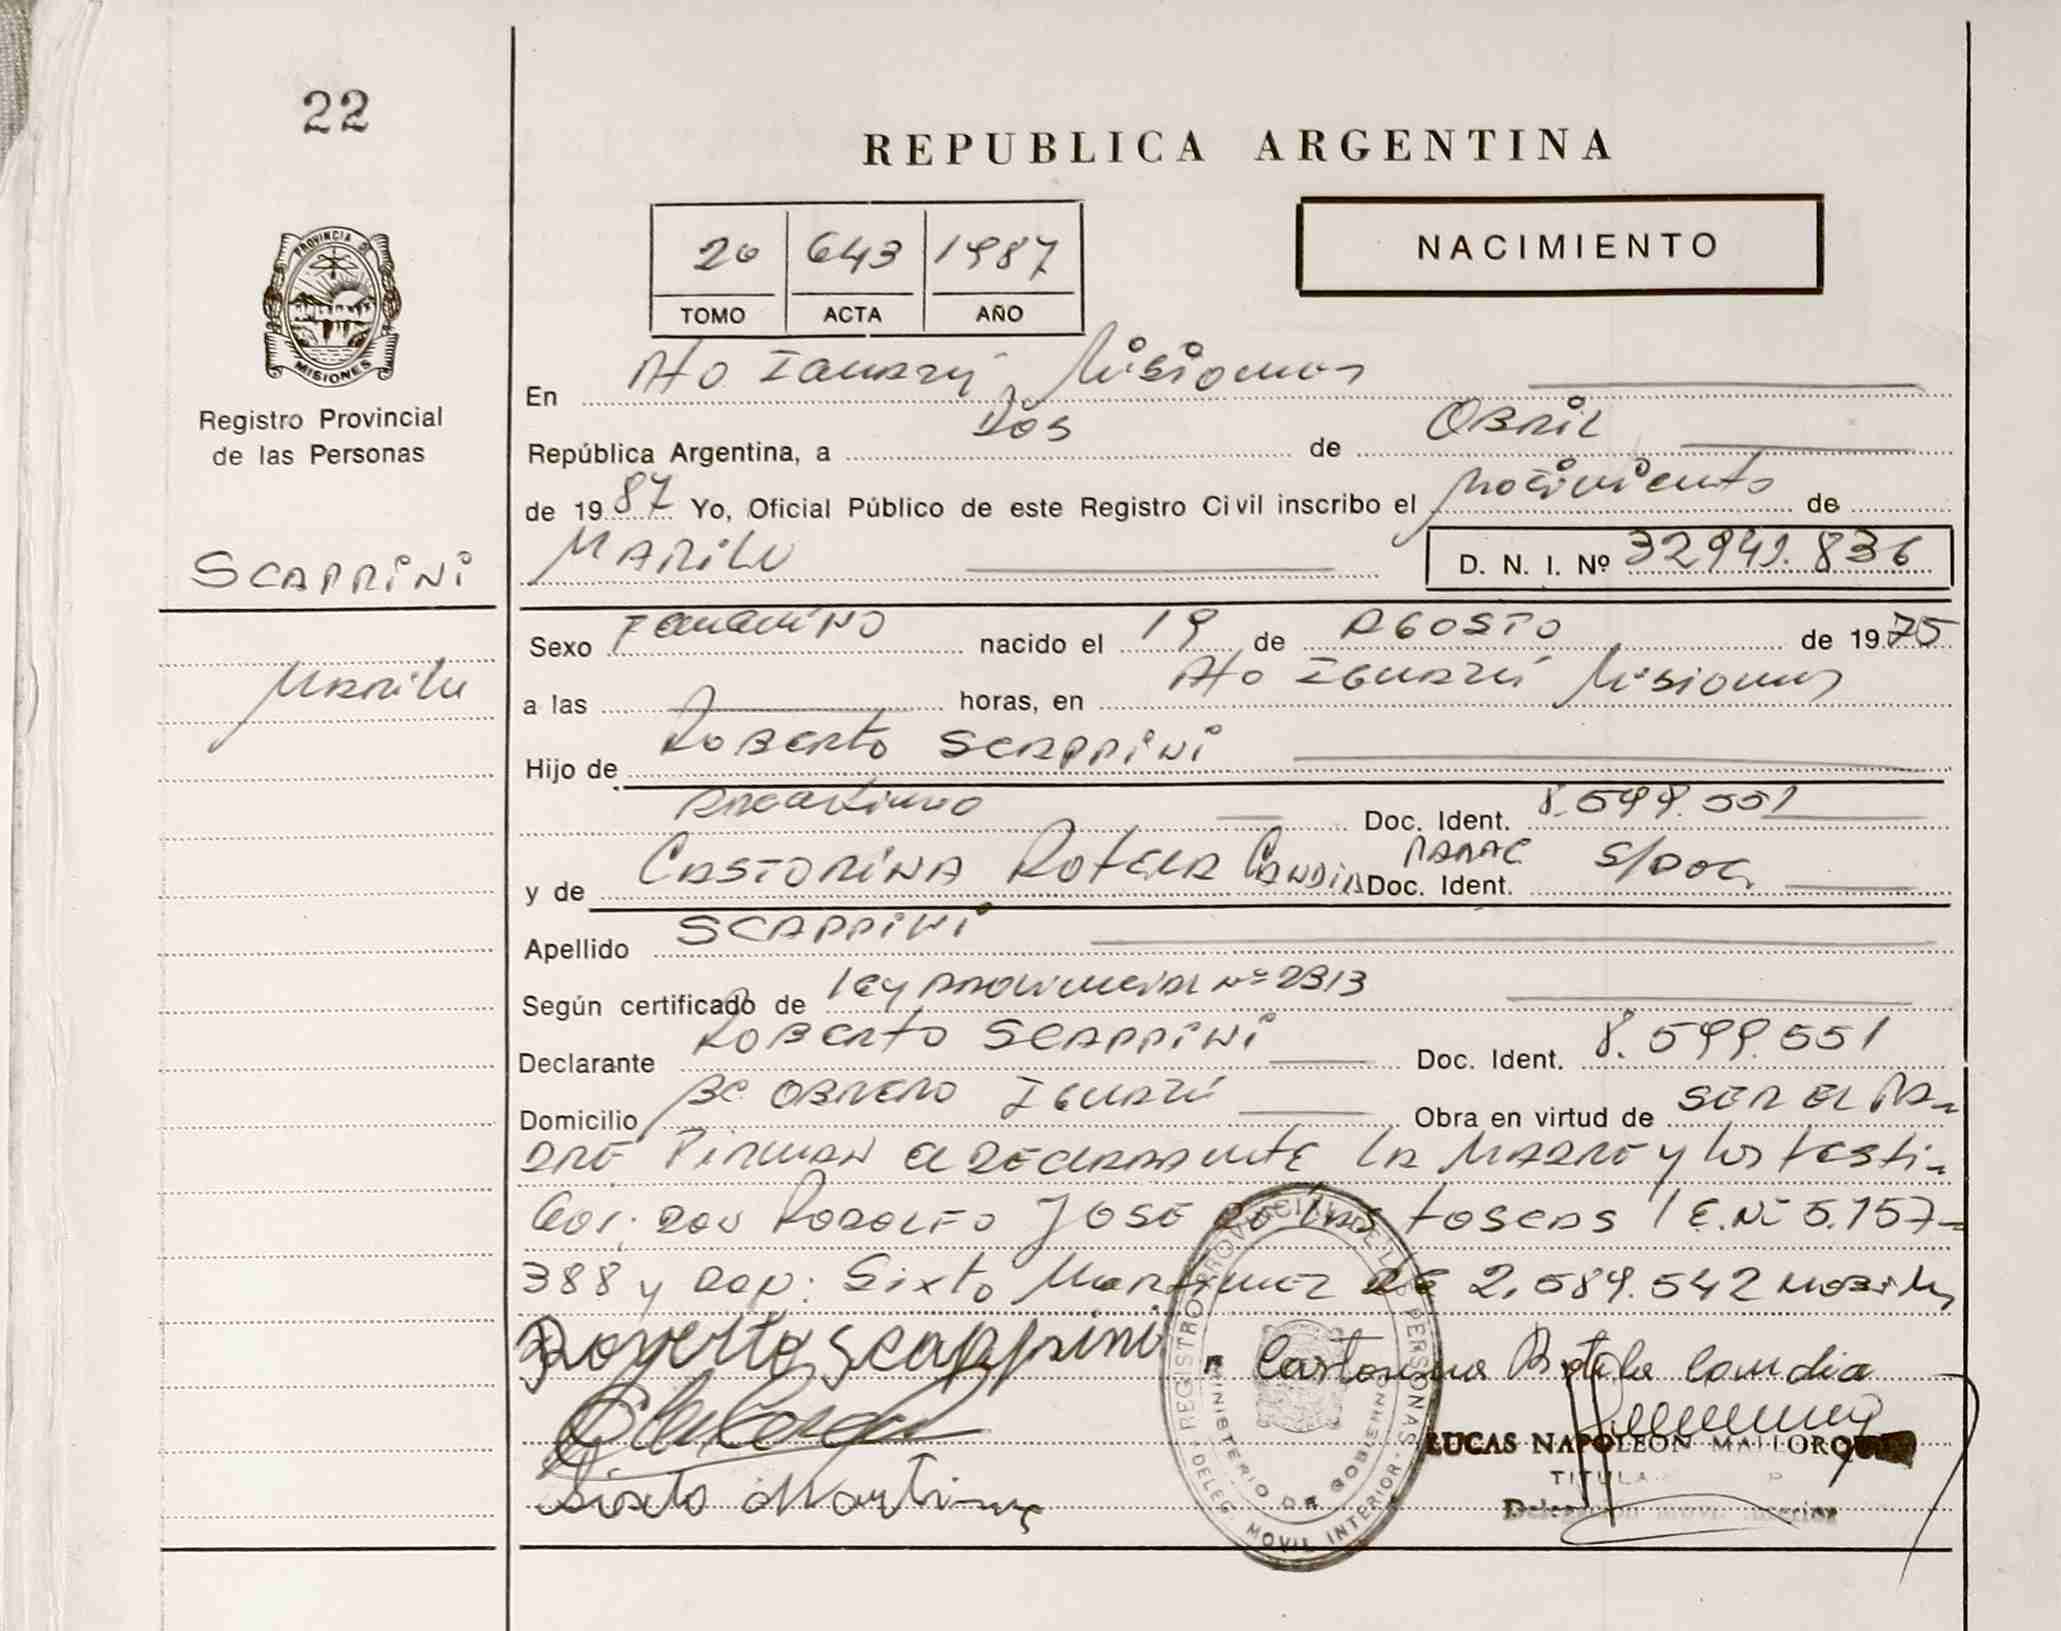 22
REPUBLICA ARGENTINA
20 643 1987
TOMO ACTA AÑO
NACIMIENTO
PROVINCIA DE
MISIONES
Registro Provincial
de las Personas
SCAPPiNi
Marilu
En Pto Iguazú, Misiones
República Argentina, a Dos de Abril
de 1987 Yo, Oficial Público de este Registro Civil inscribo el Nacimiento de
MARILU D. N. I. Nº 32949.836
Sexo Femenino nacido el 19 de AGOSTO de 1975
a las horas, en Pto Iguazú Misiones
Hijo de Roberto SCAPPiNi
Argentino Doc. Ident. 8.599.551
y de CASTORiNA Rotela Candia PARAG Doc. Ident. S/DOC.
Apellido SCAPPiNi
Según certificado de ley provincial nº 2313
Declarante Roberto SCAPPiNi Doc. Ident. 8.599.551
Domicilio Bº OBRERO Iguazú Obra en virtud de SER EL PA-
DRE Firman el DEClarante LA MADRE y los testi-
gos: Don Rodolfo JOSE de las toscas l E.Nº 5.157-
388 y Don: Sixto Martinez DE 2.589.542
Royerto Scappini Castorina Rotela Candia
LUCAS NAPOLEON MALLORQ
TITULA
Sixto Martinez Delegacion Movil Interior
REGISTRO PROVINCIAL DE LAS PERSONAS
MINISTERIO DE GOBIERNO
DELEG. MOVIL INTERIOR